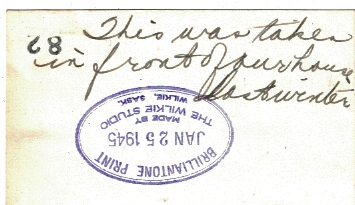 This was taken
82
in front of our house
last winter
BRILLIANTONE PRINT
JAN 25 1945
MADE BY
THE WILKIE STUDIO
WILKIE, SASK.